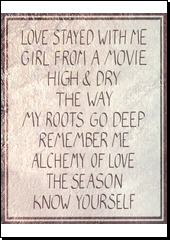 LOVE STAYED WITH ME
GIRL FROM A MOVIE
HIGH & DRY
THE WAY
MY ROOTS GO DEEP
REMEMBER ME
ALCHEMY OF LOVE
THE SEASON
KNOW YOURSELF